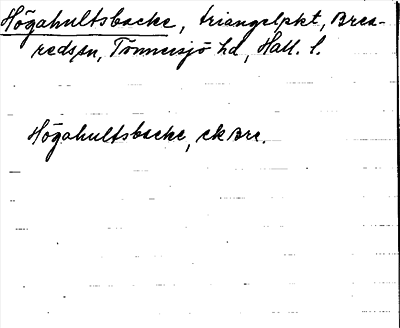 Högahultsbacke, triangelpkt, Brea-
redssn, Tönnersjö hd, Hall. l.
Högahultsbacke, ek Bre.